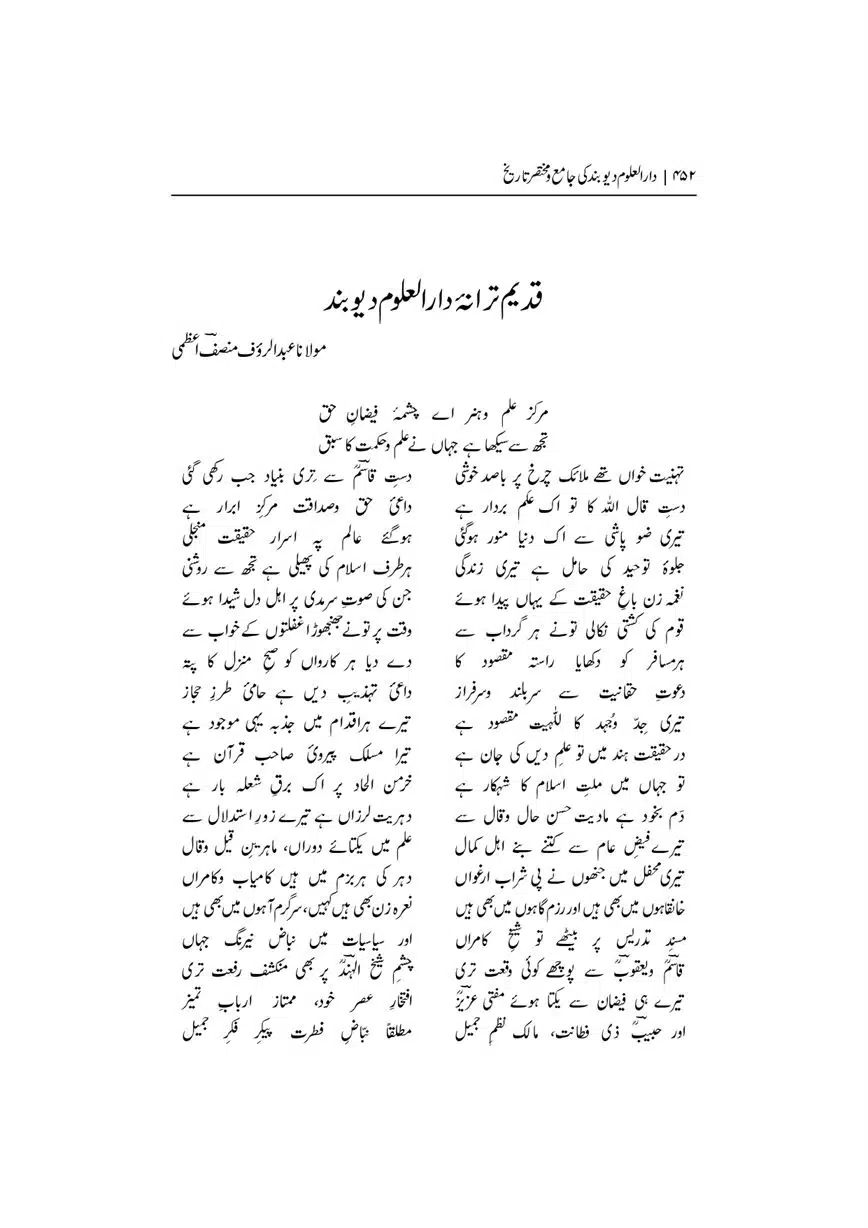 ۴۵۲ | دارالعلوم دیوبند کی جامع و مختصر تاریخ
قدیم ترانۂ دارالعلوم دیوبند
مولانا عبدالرؤف منصفؔ اعظمی
مرکز علم وہنر اے چشمۂ فیضانِ حق
تجھ سے سیکھا ہے جہاں نے علم وحکمت کا سبق
تہنیت خواں تھے ملائک چرخ پر باصد خوشی دستِ قاسمؒ سے تِری بنیاد جب رکھی گئی
دستِ قال اللہ کا تو اک علم بردار ہے داعیٔ حق وصداقت مرکزِ ابرار ہے
تیری ضو پاشی سے اک دنیا منور ہوگئی ہوگئے عالم پہ اسرار حقیقت منجلی
جلوۂ توحید کی حامل ہے تیری زندگی ہرطرف اسلام کی پھیلی ہے تجھ سے روشنی
نغمہ زن باغِ حقیقت کے یہاں پیدا ہوئے جن کی صوتِ سرمدی پر اہل دل شیدا ہوئے
قوم کی کشتی نکالی تونے ہر گرداب سے وقت پر تونے جھنجھوڑا غفلتوں کے خواب سے
ہرمسافر کو دکھایا راستہ مقصود کا دے دیا ہر کارواں کو صبحِ منزل کا پتہ
دعوتِ حقانیت سے سربلند وسرفراز داعیٔ تہذیبِ دیں ہے حامیٔ طرزِ حجاز
تیری جِدّ وجُہد کا للّٰہیت مقصود ہے تیرے ہراقدام میں جذبہ یہی موجود ہے
درحقیقت ہند میں تو علمِ دیں کی جان ہے تیرا مسلک پیرویٔ صاحب قرآن ہے
تو جہاں میں ملتِ اسلام کا شہکار ہے خرمن الحاد پر اک برقِ شعلہ بار ہے
دَم بخود ہے مادیت حسن حال وقال سے دہریت لرزاں ہے تیرے زورِ استدلال سے
تیرے فیضِ عام سے کتنے بنے اہل کمال علم میں یکتائے دوراں، ماہرینِ قیل وقال
تیری محفل میں جنھوں نے پی شراب ارغواں دہر کی ہربزم میں ہیں کامیاب وکامراں
خانقاہوں میں بھی ہیں اور رزم گاہوں میں بھی ہیں نعرہ زن بھی ہیں کہیں، سرگرم آہوں میں بھی ہیں
مسندِ تدریس پر بیٹھے تو شیخِ کامراں اور سیاسیات میں نباض نیرنگ جہاں
قاسمؒ ویعقوبؒ سے پوچھے کوئی وقعت تری چشمِ شیخ الہندؒ پر بھی منکشف رفعت تری
تیرے ہی فیضان سے یکتا ہوئے مفتی عزیزؒ افتخارِ عصر خود، ممتاز اربابِ تمیز
اور حبیبؒ ذی فطانت، مالک نظمِ جمیل مطلقاً نبّاضِ فطرت پیکرِ فکرِ جمیل